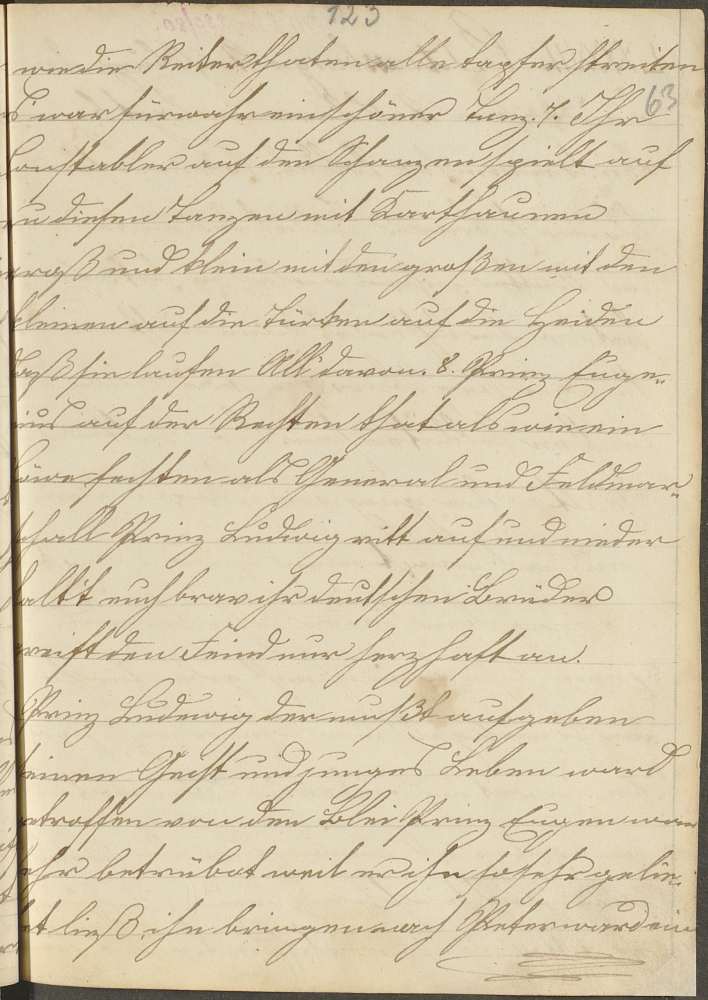 123
63
wie die Reiter thaten alle tapfer streiten
s' war fürwahr ein schöner Tanz. 7. Ihr
Constabler auf den Schanzen spielt auf
zu diesen Tanzen mit Karthaunen
groß und klein mit den großen mit den
kleinen auf die Türken auf die Heiden
daß sie laufen All davon. 8. Prinz Euge-
nius auf der Rechten that als wie ein
Löwe fechten als General und Feldmar-
schall Prinz Ludwig ritt auf und nieder
halt't euch brav ihr deutschen Brüder
greift den Feind nur herzhaft an.
Prinz Ludewig der mußt aufgeben
seinen Geist und junges Leben ward
getroffen von den Blei Prinz Eugen war
sehr betrübet weil er ihn so sehr gelie-
bet ließ ihn bringen nach Peterwardein